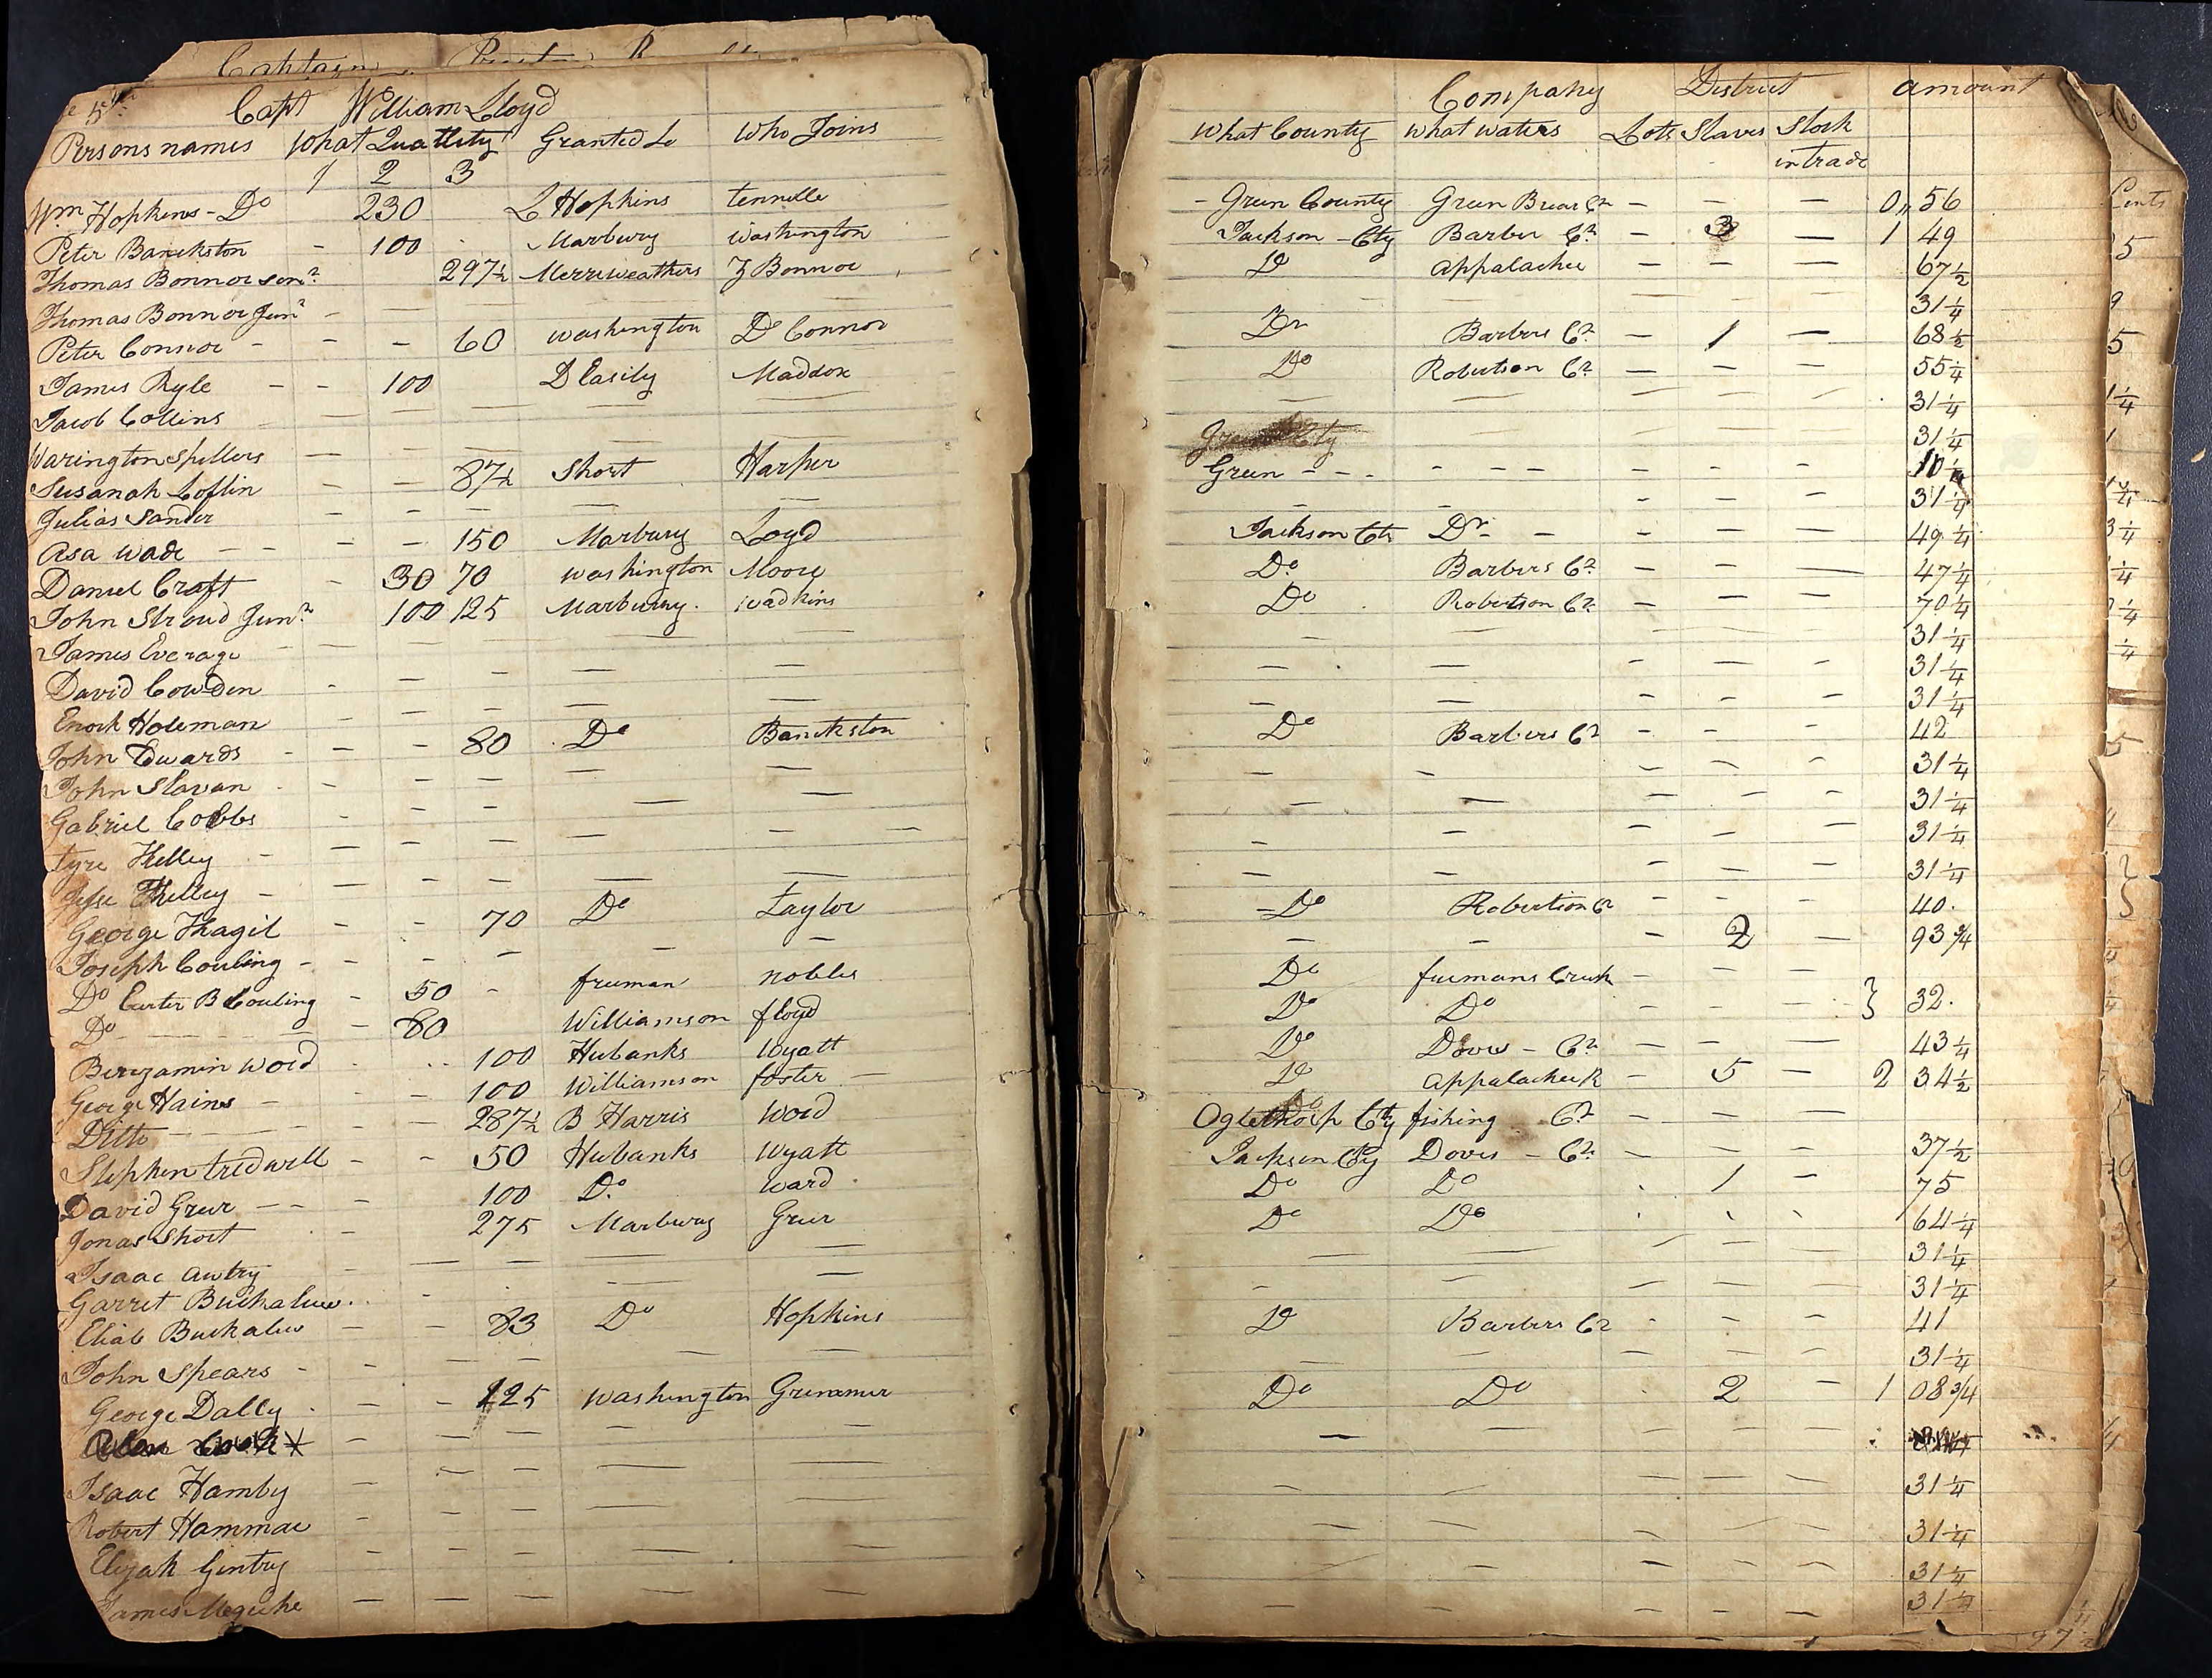 Captain
5th Capt William Lloyd
Persons names What Quallity Granted to Who Joins
1 2 3
Wm Hopkins - Do 230 L Hopkins tennille
Peter Banckston - 100 Marbury Washington
Thomas Bonnor senr 297½ Merriweathers Z Bonnor
Thomas Bonnor Junr - — —
Peter Connor - - - 60 Washington D Connor
James Ryle - - 100 D Easily Maddox
Jacob Collins — — — — —
Warington Spillers — — — — —
Susanah Loflin — — 87½ Short Harper
Julias Sander — — — — —
Asa Wade - - - - 150 Marbury Loyd
Daniel Craft - 30 70 Washington Moore
John Stroud Junr 100 125 Marbury Wadkins
James Everage — — — —
David Cowden - — — — —
Enoch Holeman - — — — —
John Edwards - - - 80 Do Banckston
John Slavan - — — — —
Gabriel Cobbs - — — — —
tyre Kelley - — — — — —
Jesse Kelley - — — — — —
George Thagil - - 70 Do Taylor
Joseph Couling - - - — — —
Do Carter B Couling - 50 - freeman nobles
Do - - - - 80 Williamson floyd
Benjamin Word - - 100 Hubanks Wyatt
George Hains - - - 100 Williamson foster -
Ditto - - - - 287½ B Harris Word
Stephen tredwell - - 50 Hubanks Wyatt
David Greer - - - 100 Do Ward
Jonas Short - 275 Marbury Greer
Isaac Awtry - — — — —
Garret Buckalew - — —
Eliab Buckalew — — 83 Do Hopkins
John Spears - — — — — —
George Dally - — - 225 Washington Grimmer
Isaac Hamby — — — — —
Robert Hammac — — — — —
Elijah Gentry — — — — —
James Meguhe — — — — —
Company District amount
What County What waters Lots Slaves Stock
in trade
- Green County Green Briar Cr - - - 0,, 56
Jackson - Cty Barber Cr - 3 — 1 49
Do Appalachee - - — 67½
— — — — — 31¼
Do Barbers Cr - 1 — 68½
Do Robertson Cr — — — 55¼
— — — — — 31¼
— — — — 31¼
Green - - - - - - - - - -
— — - - - 31¼
Jackson Cty Do - - - - — 49¼
Do Barbers Cr - - — 47¼
Do Robertson Cr - - — 70¼
— — — — — 31¼
— — - — - 31¼
— — - - - 31¼
Do Barbers Cr - - - 42
— - - - - 31¼
— — - - - 31¼
- — - - — 31¼
— — - - — 31¼
- Do Robertson Cr - - - 40
— - - 2 — 93¾
Do freemans Creek - - —
Do Do - - - } 32
Do Doves - Cr — - — 43¼
Do Appalachee R - 5 - 2 34½
Oglethorp Cty fishing Cr - - —
Jackson Cty Doves - Cr - — — 37½
Do Do - 1 - 75
Do Do 64¼
— — - — — 31¼
- — - — — 31¼
Do Barbers Cr - - - 41
— — - — — 31¼
Do Do - 2 - 1 08¾
— — — — —
- — — — — 31¼
— — — — — 31¼
— — - - — 31¼
— — - - - 31¼